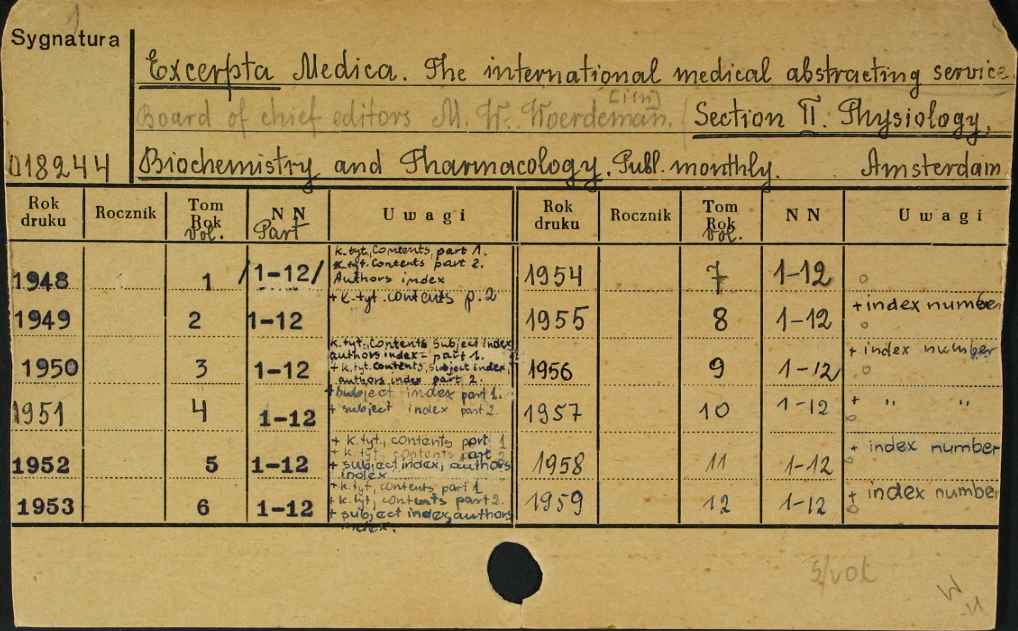 Sygnatura
Excerpta Medica. The international medical abstracting service.
Board of chief editors M. W. Woerdeman. [i in] / Section II. Physiology,
018244 Biochemistry and Pharmacology. Publ. monthly. Amsterdam
Rok druku Rocznik Tom Rok Vol. NN Part Uwagi Rok druku Rocznik Tom Rok Vol. NN Uwagi
1948 1 /1-12/ k.tyt., Contents, part 1.
k.tyt. Contents part 2.
Authors index
1954 7 1-12
1949 2 1-12 + k.tyt. contents p.2
1955 8 1-12 + index number
1950 3 1-12 k.tyt., Contents subject index,
authors index - part 1.
+ k.tyt. contents, subject index,
authors index part 2.
1956 9 1-12 + index number
1951 4 1-12 + subject index part 1.
+ subject index part 2.
1957 10 1-12 + " "
1952 5 1-12 + k.tyt., contents part 1
+ k.tyt., contents part 2
+ subject index, authors
index
1958 11 1-12 + index number
1953 6 1-12 + k.tyt., contents part 1
+ k.tyt., contents part 2.
+ subject index, authors
index.
1959 12 1-12 + index number